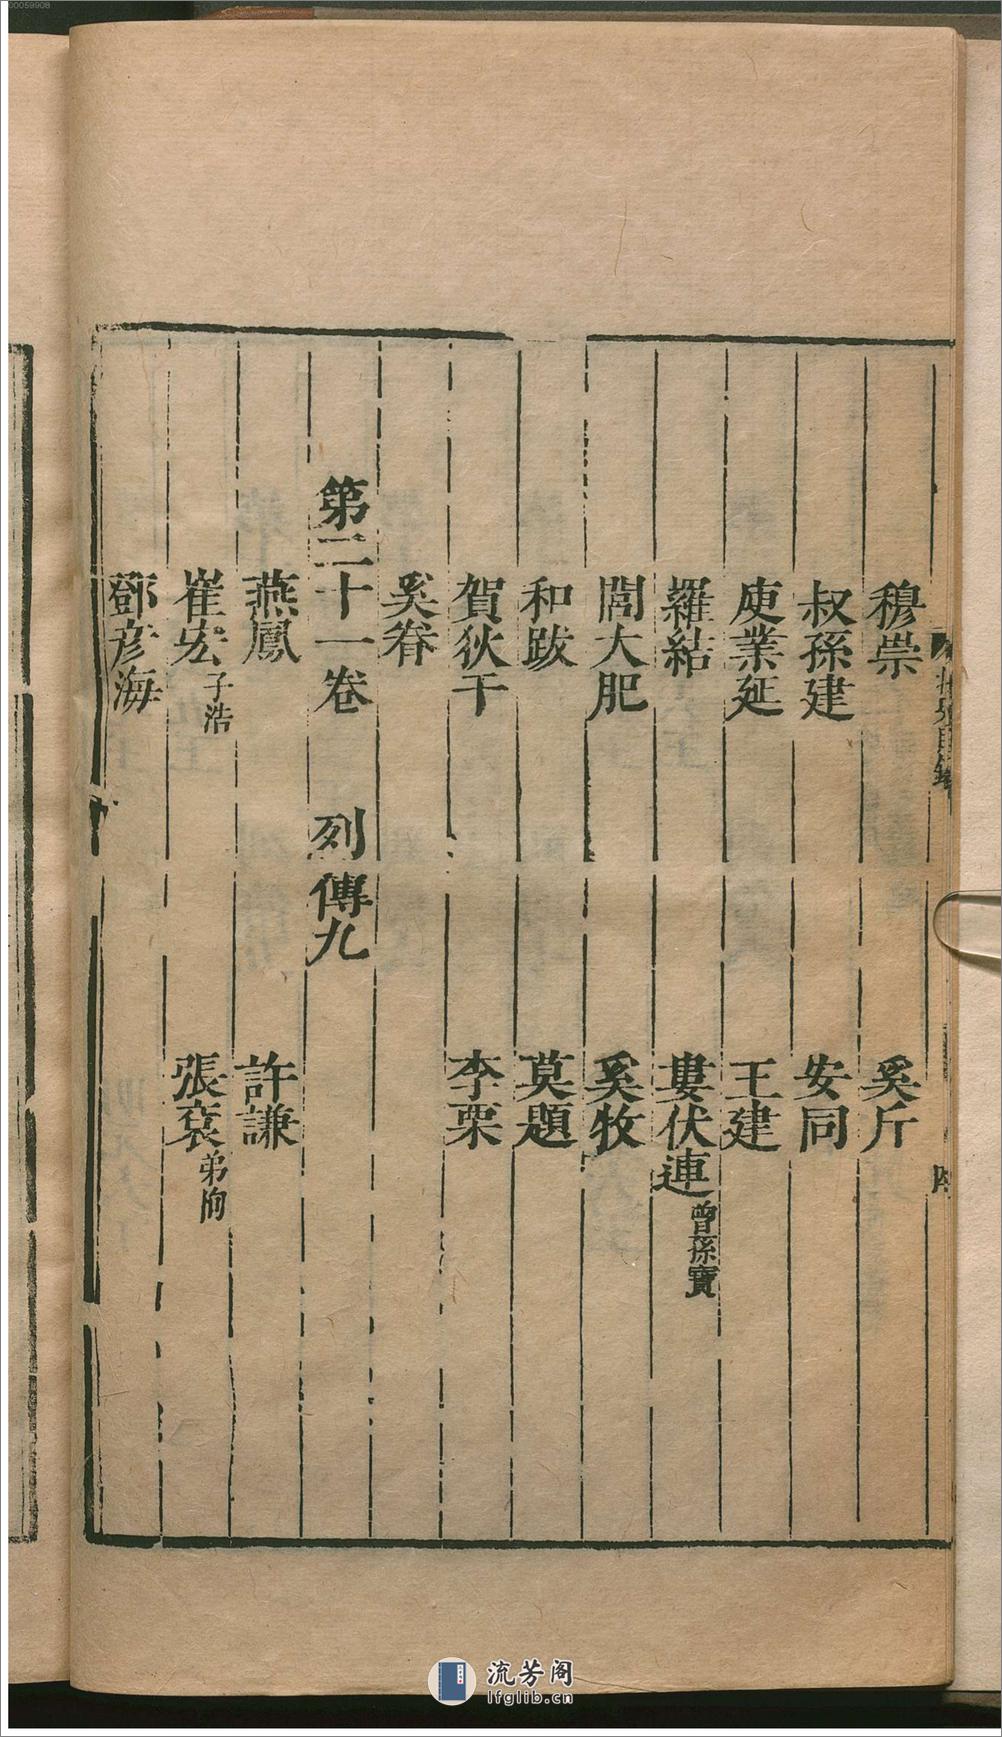 00059908
穆崇　奚斤
叔孫建　安同
庾業延　王建
羅結　婁伏連曾孫寶
閭大肥　奚牧
和跋　莫題
賀狄干　李栗
奚眷
第二十一卷　列傳九
燕鳳　許謙
崔宏子浩　張袞弟恂
鄧彦海
流芳阁
lfglib.cn